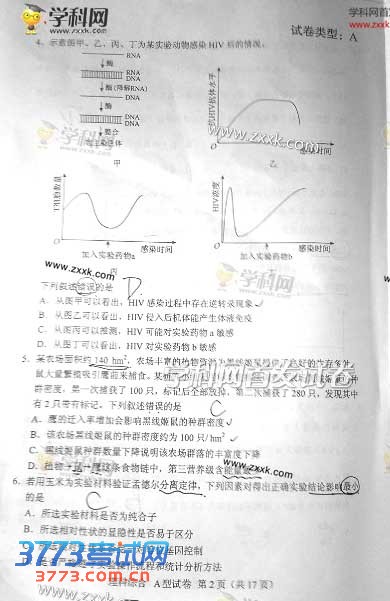 学科网
www.zxxk.com
学科网首
www.zxxk.
试卷类型：A
4、示意图甲、乙、丙、丁为某实验动物感染 HIV 后的情况。
RNA
酶
RNA
DNA
酶(降解RNA)
DNA
酶
DNA
DNA
整合
甲
抗HIV抗体水平
O
感染时间
乙
www.zxxk.com
T细胞数量
O
加入实验药物a
感染时间
丙
HIV浓度
O
加入实验药物b
感染时间
学科网
www.zxxk.com
下列叙述错误的是 D
A. 从图甲可以看出，HIV 感染过程中存在逆转录现象
B. 从图乙可以看出，HIV 侵入后机体能产生体液免疫
C. 从图丙可以推测，HIV 可能对实验药物 a 敏感
D. 从图丁可以看出，HIV 对实验药物 b 敏感
学科网首发试卷
5. 某农场面积约 140 hm²，农场丰富的植物资源为黑线姬鼠提供了良好的生存条件，
鼠大量繁殖吸引鹰前来捕食。某
群密度，第一次捕获了 100 只，标记后全部放掉，第二次捕获了 280 只，发现其中
有 2 只带有标记。下列叙述错误的是 C
A. 鹰的迁入率增加会影响黑线姬鼠的种群密度
B. 该农场黑线姬鼠的种群密度约为 100 只/ hm²
C. 黑线姬鼠种群数量下降说明该农场群落的丰富度下降
D. 植物→鼠→鹰这条食物链中，第三营养级含能量
www.zxxk.com
6. 若用玉米为实验材料验证孟德尔分离定律，下列因素对得出正确实验结论影响最小
的是 C
A. 所选实验材料是否为纯合子
B. 所选相对性状的显隐性是否易于区分
基因控制
操作流程和统计分析方法
3773考试网
www.3773.com.cn
理科综合 A型试卷 第 2 页（共 17 页）